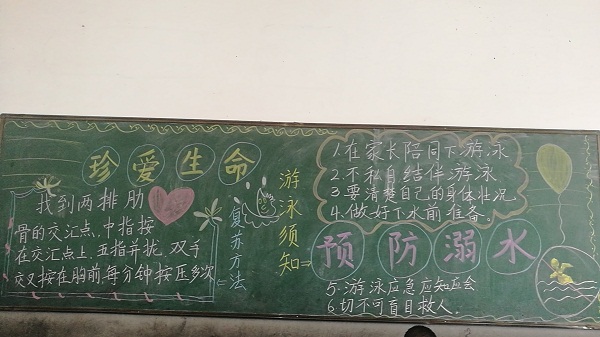 珍爱生命
找到两排肋
骨的交汇点,中指按
在交汇点上,五指并拢,双手
交叉按在胸前,每分钟按压多次
复苏方法
游泳须知
1.在家长陪同下游泳
2.不私自结伴游泳
3.要清楚自己的身体状况
4.做好下水前准备.
预防溺水
5.游泳应急应知应会
6.切不可盲目救人.